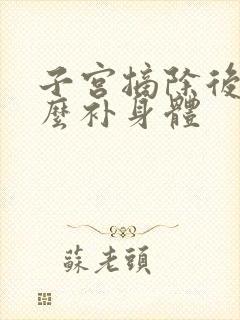 子宫摘除後
麼补身體
蘇老頭